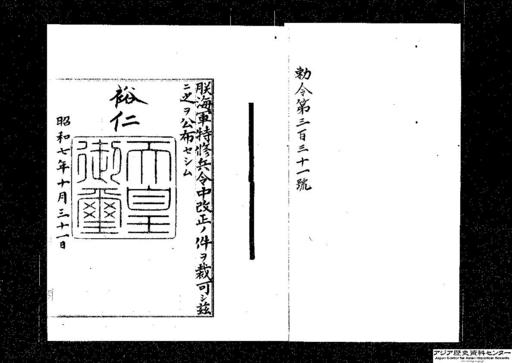 勅令第三百三十一號
朕海軍特修兵令中改正ノ件ヲ裁可シ茲
ニ之ヲ公布セシム
裕仁
天皇御璽
昭和七年十月三十一日
アジア歴史資料センター
Japan Center for Asian Historical Records